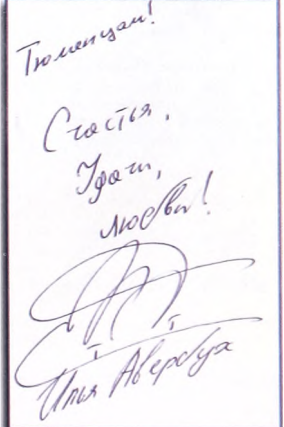 Тюменцам!
Счастья,
Удачи,
любви!
Илья Авербух